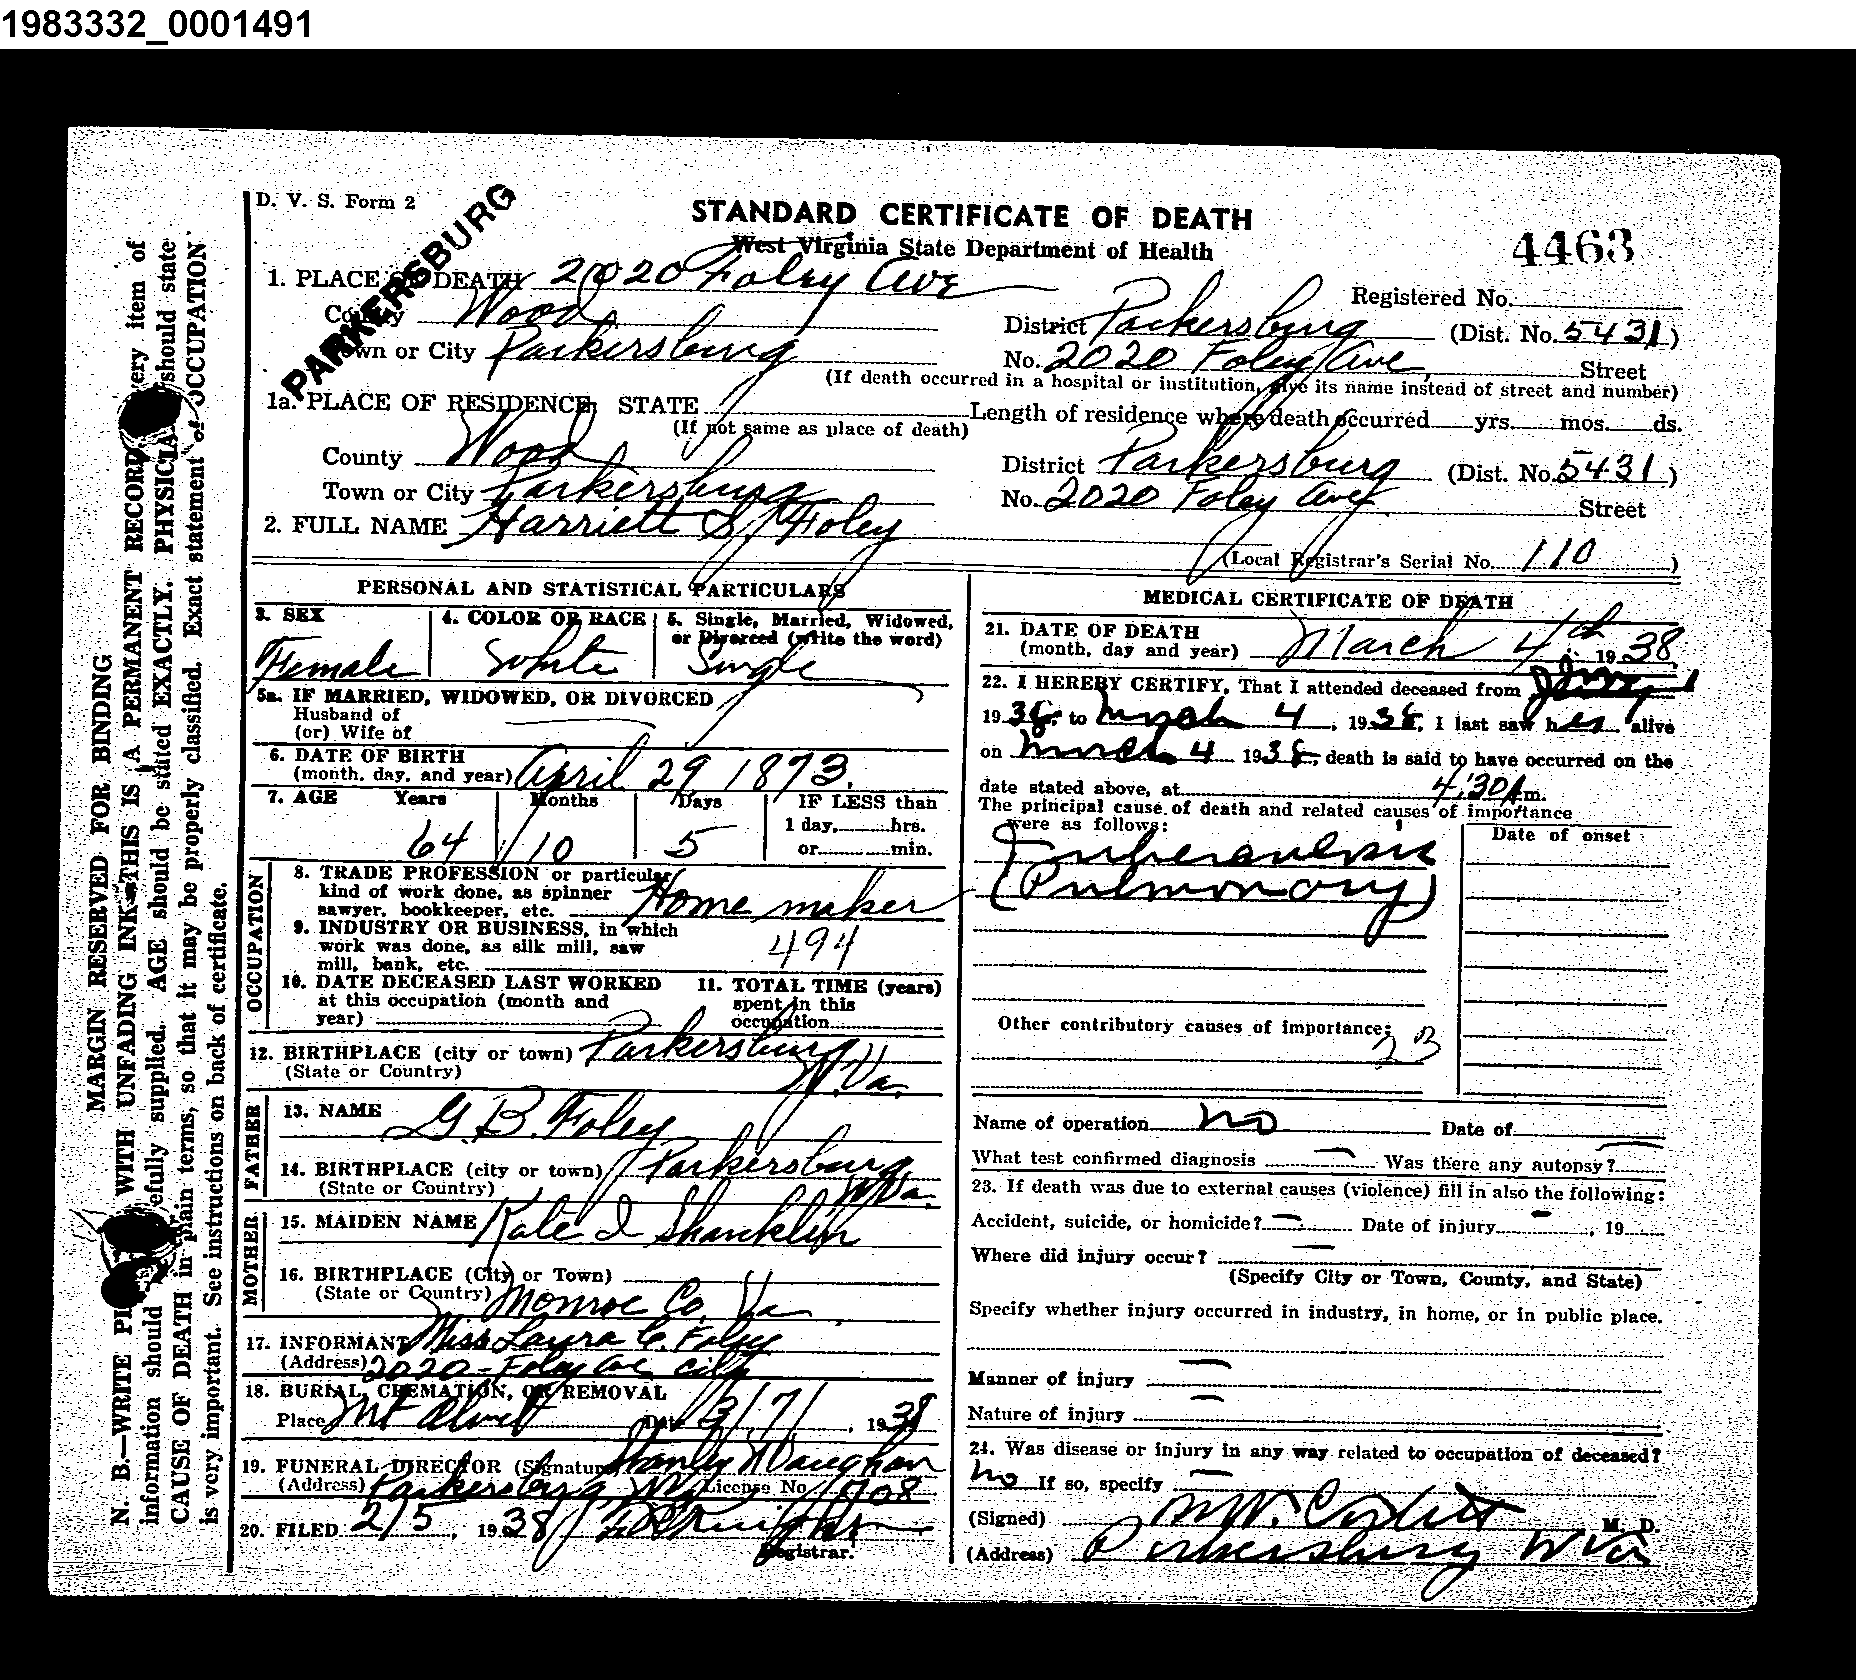 1983332_0001491
D. V. S. Form 2
PARKERSBURG
STANDARD CERTIFICATE OF DEATH
West Virginia State Department of Health
4463
1. PLACE OF DEATH 2020 Foley Ave
Registered No.
County Wood
District Parkersburg (Dist. No. 5431)
Town or City Parkersburg
No. 2020 Foley Ave, Street
(If death occurred in a hospital or institution, give its name instead of street and number)
1a. PLACE OF RESIDENCE, STATE
(If not same as place of death)
Length of residence where death occurred yrs. mos. ds.
County Wood
District Parkersburg (Dist. No. 5431)
Town or City Parkersburg
No. 2020 Foley Ave Street
2. FULL NAME Harriett S. Foley
(Local Registrar's Serial No. 110 )
PERSONAL AND STATISTICAL PARTICULARS
3. SEX
Female
4. COLOR OR RACE
White
5. Single, Married, Widowed,
or Divorced (write the word)
Single
5a. IF MARRIED, WIDOWED, OR DIVORCED
Husband of
(or) Wife of
6. DATE OF BIRTH
(month, day, and year) April 29 1873.
7. AGE Years Months Days
64 10 5
IF LESS than
1 day, hrs.
or min.
OCCUPATION
8. TRADE PROFESSION or particular
kind of work done, as spinner
sawyer, bookkeeper, etc. Home maker
9. INDUSTRY OR BUSINESS, in which
work was done, as silk mill, saw
mill, bank, etc.
494
10. DATE DECEASED LAST WORKED
at this occupation (month and
year)
11. TOTAL TIME (years)
spent in this
occupation
12. BIRTHPLACE (city or town) Parkersburg
(State or Country) W. Va.
FATHER
13. NAME G. B. Foley
14. BIRTHPLACE (city or town) Parkersburg
(State or Country) W Va.
MOTHER
15. MAIDEN NAME Kate I Shanklin
16. BIRTHPLACE (City or Town)
(State or Country) Monroe Co. Va
17. INFORMANT Miss Laura C. Foley
(Address) 2020 - Foley Ave City
18. BURIAL, CREMATION, OR REMOVAL
Place Mt Olivet Date 3/7/, 1938
19. FUNERAL DIRECTOR (Signature) Stanley Vaughan
(Address) Parkersburg, W Va License No
20. FILED 2/5, 1938
Registrar.
MEDICAL CERTIFICATE OF DEATH
21. DATE OF DEATH
(month, day and year) March 4th 1938
22. I HEREBY CERTIFY, That I attended deceased from
1938 to March 4, 1938, I last saw her alive
on March 4 1938, death is said to have occurred on the
date stated above, at 4:30 A m.
The principal cause of death and related causes of importance
were as follows:
Date of onset
Tuberculosis
(Pulmonary)
Other contributory causes of importance:
23
Name of operation no Date of
What test confirmed diagnosis — Was there any autopsy? —
23. If death was due to external causes (violence) fill in also the following:
Accident, suicide, or homicide? — Date of injury - , 19
Where did injury occur? —
(Specify City or Town, County, and State)
Specify whether injury occurred in industry, in home, or in public place.
Manner of injury —
Nature of injury —
24. Was disease or injury in any way related to occupation of deceased?
no If so, specify —
(Signed) M. D.
(Address) Parkersburg W Va
MARGIN RESERVED FOR BINDING
N. B.—WRITE WITH UNFADING INK—THIS IS A PERMANENT RECORD. Every item of
information should efully supplied. AGE should be stated EXACTLY. PHYSICIA should state
CAUSE OF DEATH in plain terms, so that it may be properly classified. Exact statement of OCCUPATION
is very important. See instructions on back of certificate.